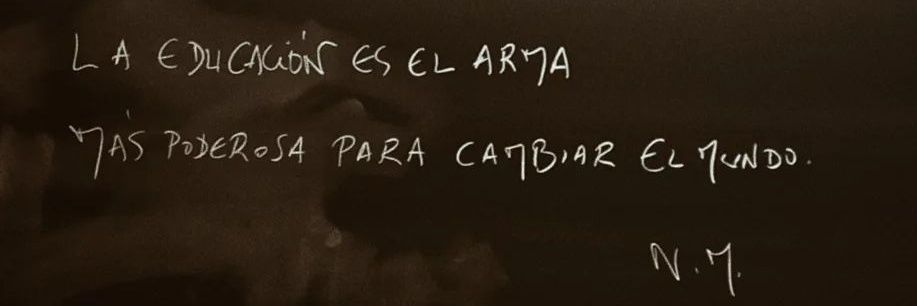 LA EDUCACIÓN ES EL ARMA
MÁS PODEROSA PARA CAMBIAR EL MUNDO.
N.M.